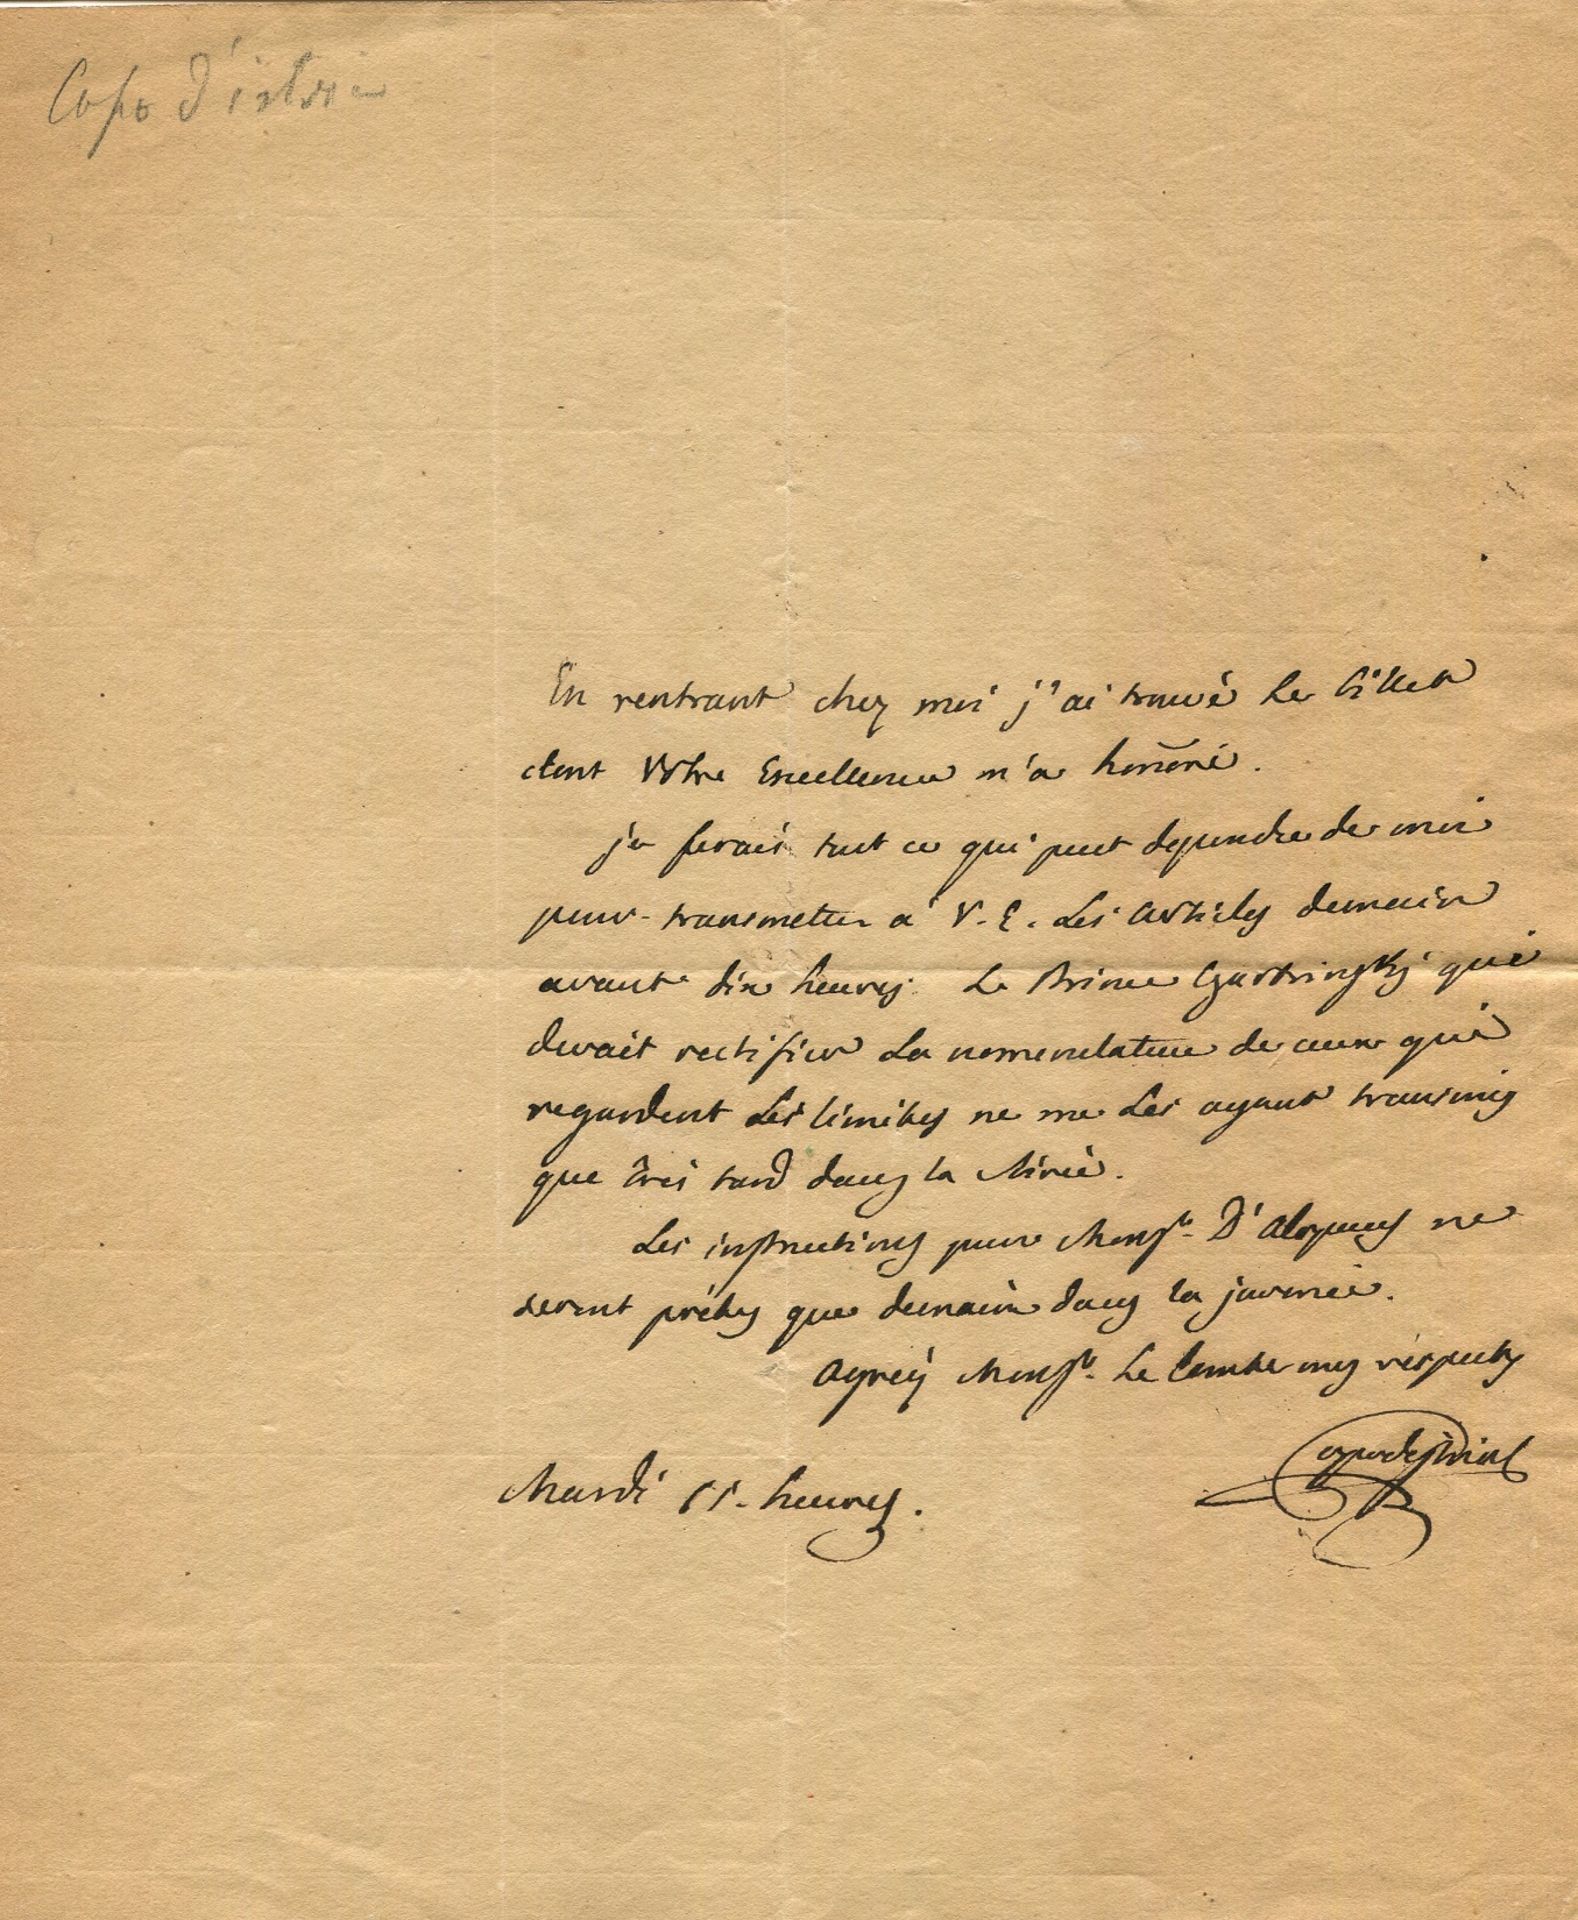 Capo d'istria
En rentrant chez moi j'ai trouvé le billet
dont Votre Excellence m'a honoré.
je ferais tout ce qui peut dependre de moi
pour transmettre a V. E. Les articles demain
avant dix heures. Le Prince Czartoryski qui
devait rectifier La nomenclature de ceux qui
regardent Les limites ne me Les ayant transmis
que très tard dans la soirée.
Les instructions pour Monsr. D'alopeus ne
seront prêtes que demain dans la journée.
agréez Monsr. Le Comte mes réspects
Capodistrias
Mardi 11. heures.